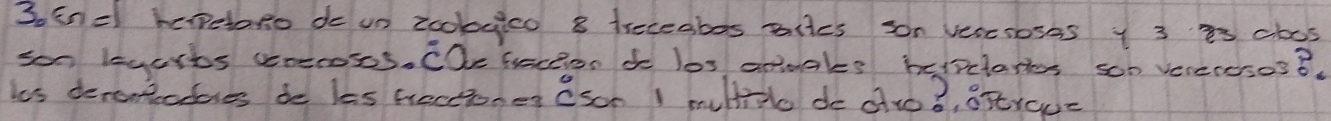 3. En el herpetario de un zoologico 8 treceabos partes son venenosas y 3 abos
son lagartos venenosos. ¿Que fraccion de los animales herpetarios son venenosos?.
los denominadores de las fracciones ¿son 1 multiplo de otro?, ¿Porque